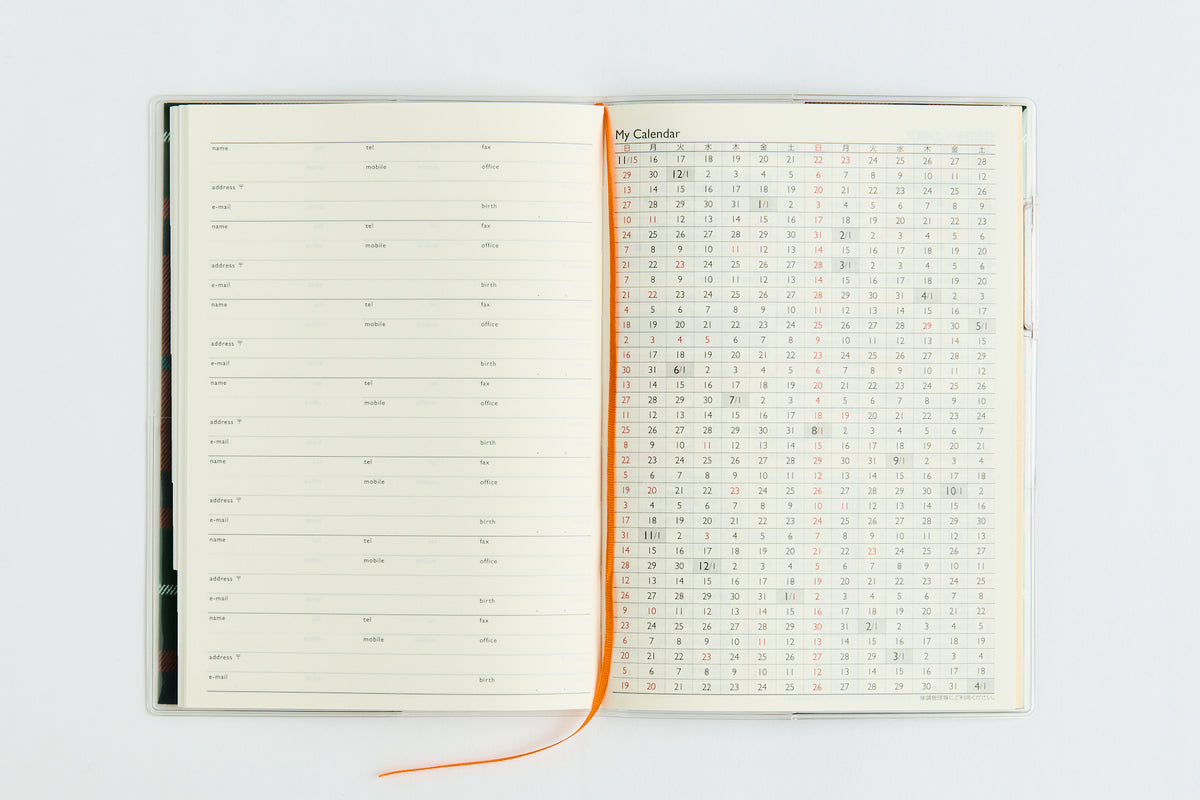 name tel fax
mobile office
address 〒
e-mail birth
name tel fax
mobile office
address 〒
e-mail birth
name tel fax
mobile office
address 〒
e-mail birth
name tel fax
mobile office
address 〒
e-mail birth
name tel fax
mobile office
address 〒
e-mail birth
name tel fax
mobile office
address 〒
e-mail birth
name tel fax
mobile office
address 〒
e-mail birth
My Calendar
日 月 火 水 木 金 土 日 月 火 水 木 金 土
11/15 16 17 18 19 20 21 22 23 24 25 26 27 28
29 30 12/1 2 3 4 5 6 7 8 9 10 11 12
13 14 15 16 17 18 19 20 21 22 23 24 25 26
27 28 29 30 31 1/1 2 3 4 5 6 7 8 9
10 11 12 13 14 15 16 17 18 19 20 21 22 23
24 25 26 27 28 29 30 31 2/1 2 3 4 5 6
7 8 9 10 11 12 13 14 15 16 17 18 19 20
21 22 23 24 25 26 27 28 3/1 2 3 4 5 6
7 8 9 10 11 12 13 14 15 16 17 18 19 20
21 22 23 24 25 26 27 28 29 30 31 4/1 2 3
4 5 6 7 8 9 10 11 12 13 14 15 16 17
18 19 20 21 22 23 24 25 26 27 28 29 30 5/1
2 3 4 5 6 7 8 9 10 11 12 13 14 15
16 17 18 19 20 21 22 23 24 25 26 27 28 29
30 31 6/1 2 3 4 5 6 7 8 9 10 11 12
13 14 15 16 17 18 19 20 21 22 23 24 25 26
27 28 29 30 7/1 2 3 4 5 6 7 8 9 10
11 12 13 14 15 16 17 18 19 20 21 22 23 24
25 26 27 28 29 30 31 8/1 2 3 4 5 6 7
8 9 10 11 12 13 14 15 16 17 18 19 20 21
22 23 24 25 26 27 28 29 30 31 9/1 2 3 4
5 6 7 8 9 10 11 12 13 14 15 16 17 18
19 20 21 22 23 24 25 26 27 28 29 30 10/1 2
3 4 5 6 7 8 9 10 11 12 13 14 15 16
17 18 19 20 21 22 23 24 25 26 27 28 29 30
31 11/1 2 3 4 5 6 7 8 9 10 11 12 13
14 15 16 17 18 19 20 21 22 23 24 25 26 27
28 29 30 12/1 2 3 4 5 6 7 8 9 10 11
12 13 14 15 16 17 18 19 20 21 22 23 24 25
26 27 28 29 30 31 1/1 2 3 4 5 6 7 8
9 10 11 12 13 14 15 16 17 18 19 20 21 22
23 24 25 26 27 28 29 30 31 2/1 2 3 4 5
6 7 8 9 10 11 12 13 14 15 16 17 18 19
20 21 22 23 24 25 26 27 28 29 3/1 2 3 4
5 6 7 8 9 10 11 12 13 14 15 16 17 18
19 20 21 22 23 24 25 26 27 28 29 30 31 4/1
体調管理等にご利用ください。